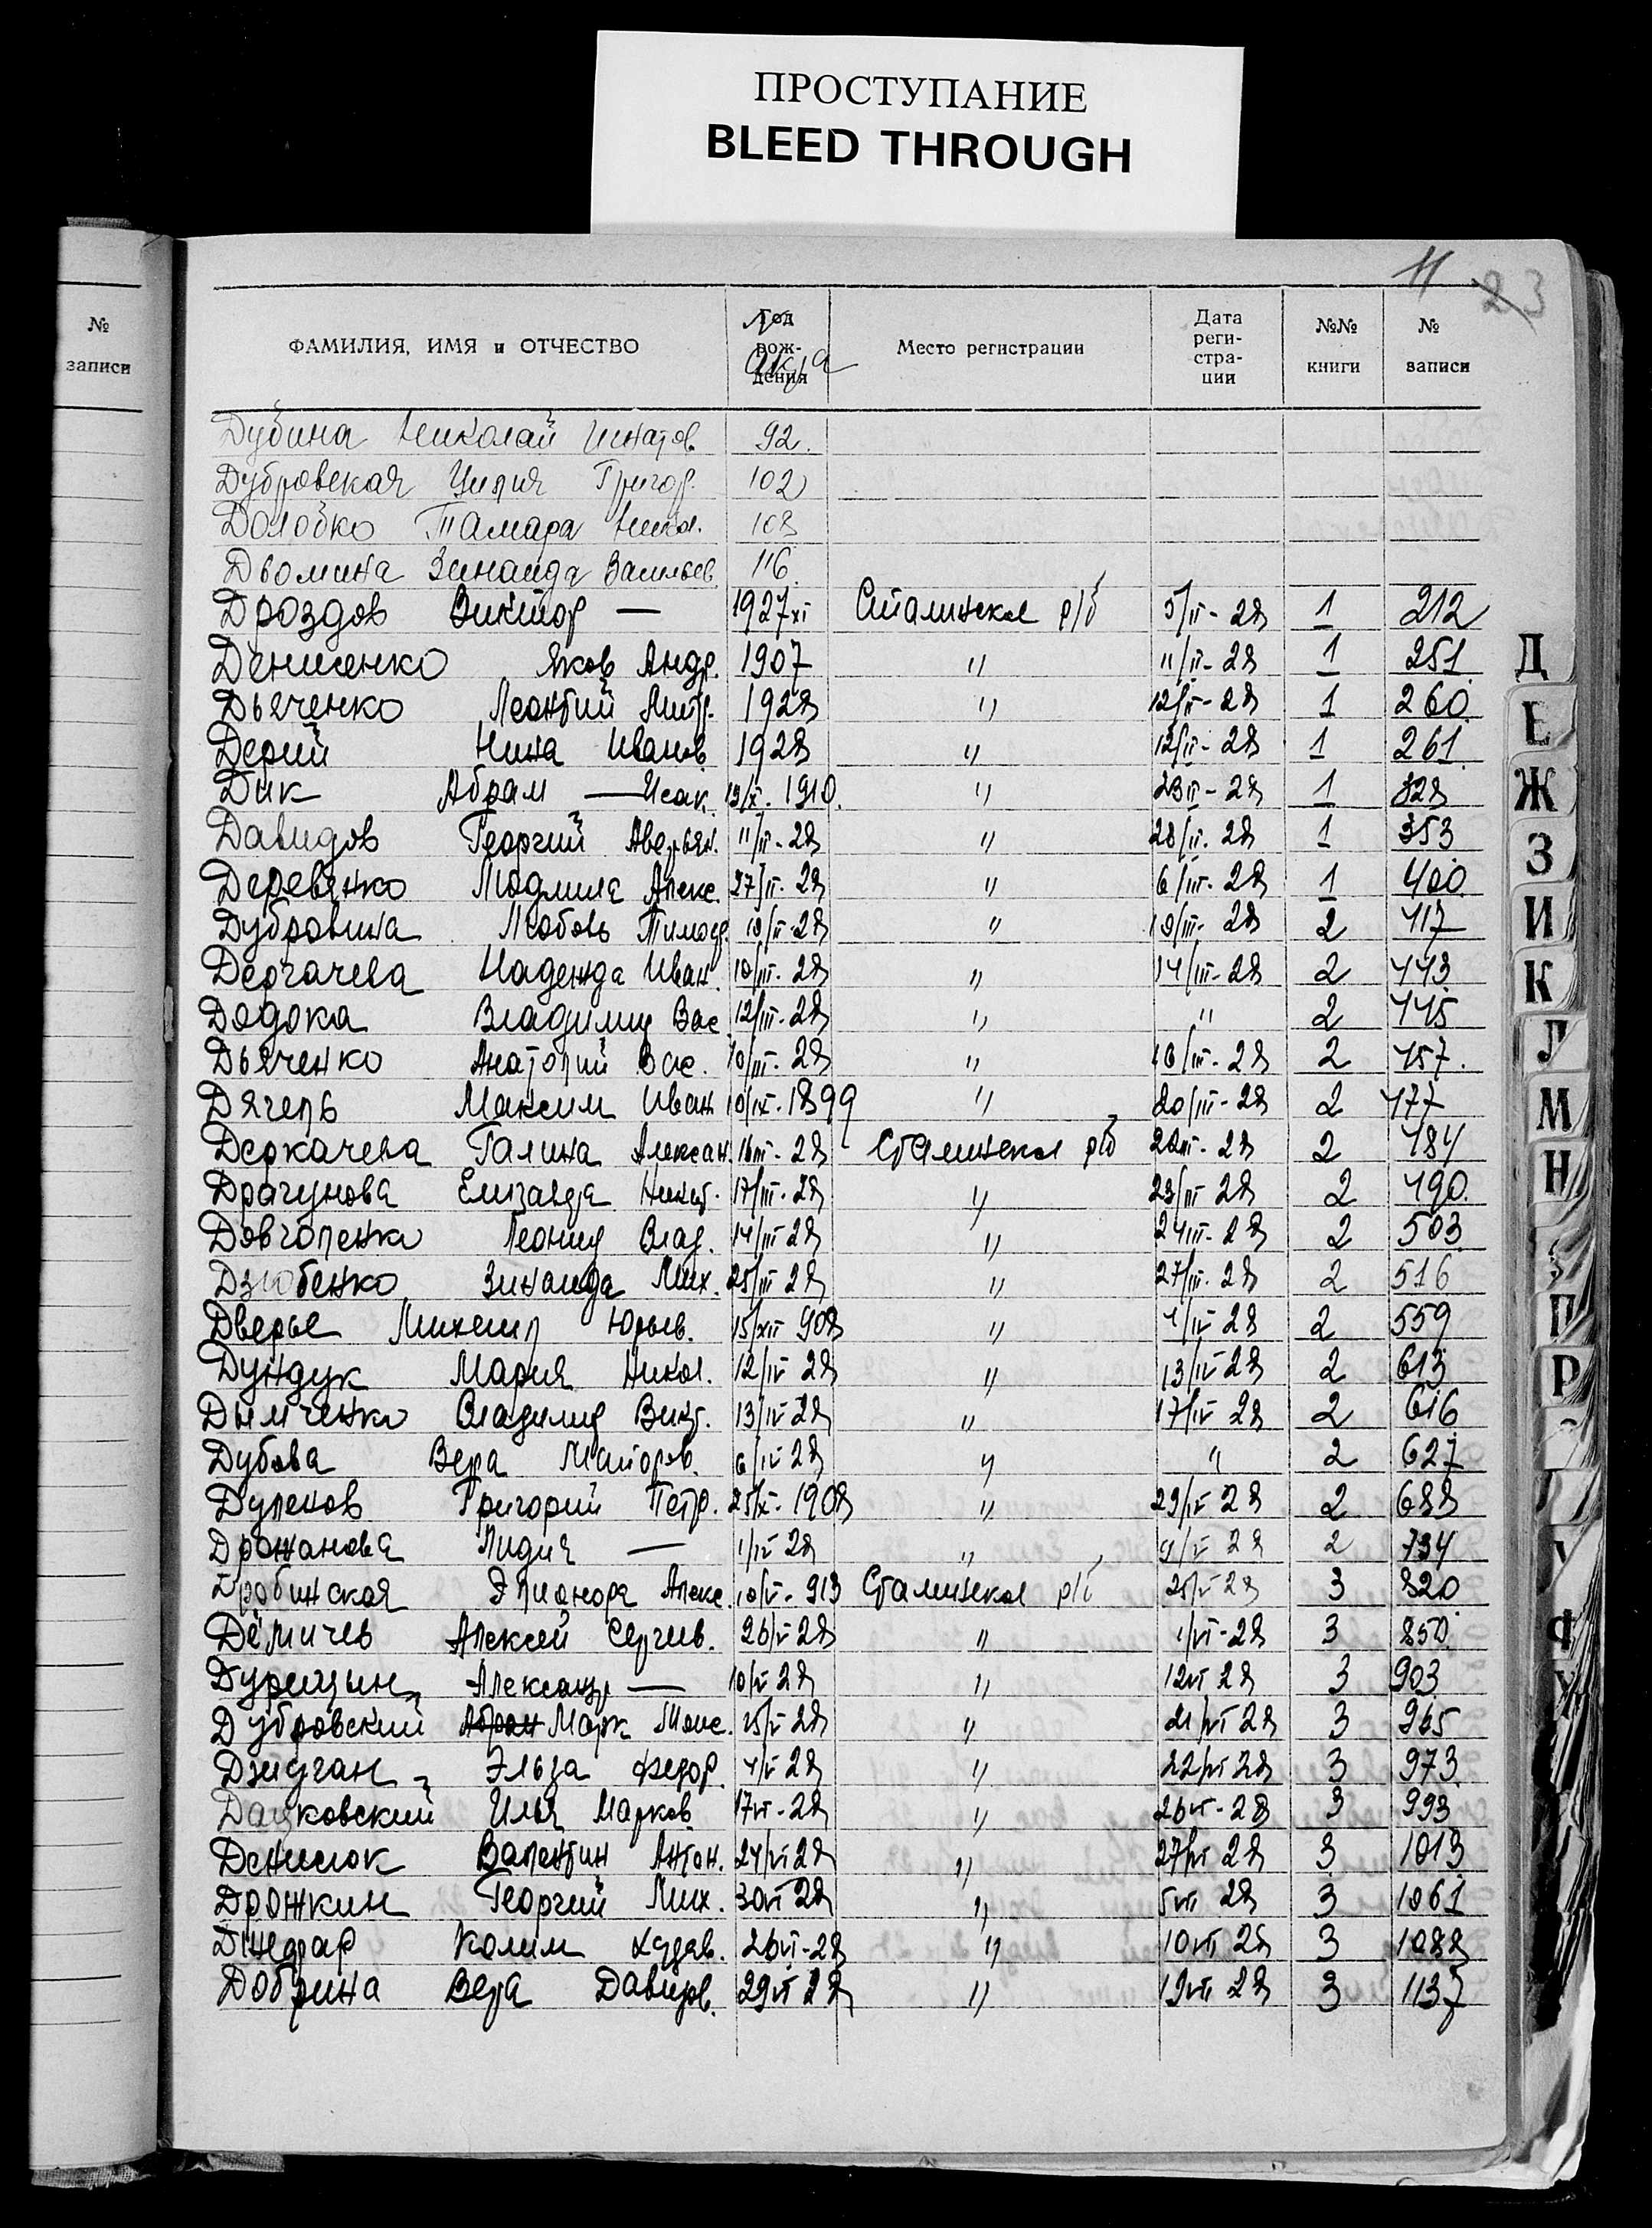 ПРОСТУПАНИЕ
BLEED THROUGH
11 23
№ записи
ФАМИЛИЯ, ИМЯ и ОТЧЕСТВО Год рождения № акта Место регистрации Дата регистрации №№ книги № записи
Дубина Николай Игнатов. 92.
Дубровская Цилия Григор. 102
Долобко Тамара Никол. 108
Дьомина Зинаида Васильев. 116
Дроздов Виктор — 1927 XI Сталинское р/б 5/II-28 1 212
Денисенко Яков Андр. 1907 " 11/II-28 1 251
Дьяченко Леонтий Митр. 1928 " 12/II-28 1 260
Дерий Нина Иванов. 1928 " 12/II-28 1 261
Дик Абрам — Исак. 19/X. 1910. " 23II-28 1 328
Давидов Георгий Аверьян. 11/II-28 " 28/II. 28 1 353
Деревянко Людмила Алекс. 27/II. 28 " 6/III. 28 1 400
Дубровина Любовь Тимоф. 10/II-28 " 10/III- 28 2 417
Дергачева Надежда Иван. 10/III. 28 " 14/III-28 2 443
Дядока Владимир Вас. 12/III-28 " " 2 445
Дьяченко Анатолий Вас. 10/III. 28 " 16/III-28 2 457.
Дягель Максим Иван 10/IX. 1899 " 20/III-28 2 477
Деркачева Галина Алексан. 16III-28 Сталинское р/б 22III-28 2 484
Драгунова Елизавета Никит. 17/III-28 " 23/III 28 2 490.
Довгопенко Леонид Влад. 14/III 28 " 24III-28 2 503
Дзюбенко Зинаида Мих. 25/III 28 " 27/III. 28 2 516
Дверье Михаил Юрьев. 15/XII 908 " 4/IV 28 2 559
Дундук Мария Никол. 12/IV 28 " 13/IV 28 2 613
Дымченко Владимир Викт. 13/IV 28 " 17/IV 28 2 616
Дубова Вера Майоров. 6/IV 28 " " 2 627
Дулеков Григорий Петр. 25/X. 1908 " 29/IV 28 2 688
Дрожанова Лидия — 1/IV 28 " 9/V 28 2 734
Дробинская Элианора Алекс. 10/V. 913 Сталинское р/б 25/V 28 3 820
Дёмичев Алексей Сергеев. 26/V 28 " 1/VI-28 3 850
Дурицын Александр — 10/V 28 " 12VI 28 3 903
Дубровский Абрам Марк Моис. 25/V 28 " 21/VI 28 3 965
Джидган Эльза Федор. 4/V 28 " 22/VI 28 3 973
Дашковский Илья Марков. 17VI-28 " 26VI-28 3 993
Денисюк Валентин Антон. 24/VI 28 " 27/VI 28 3 1013
Дрожкин Георгий Мих. 30VI 28 " 5VII 28 3 1061
Джафар Колим 26VI-28 " 10VII 28 3 1088
Добрина Вера Давидов. 29VI 28 " 19VII 28 3 1137
Д
Е
Ж
З
И
К
Л
М
Н
П
Р